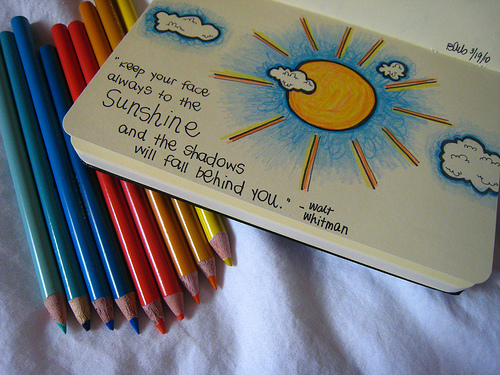 "keep your face
always to the
Sunshine
and the shadows
will fall behind you."
- walt
whitman